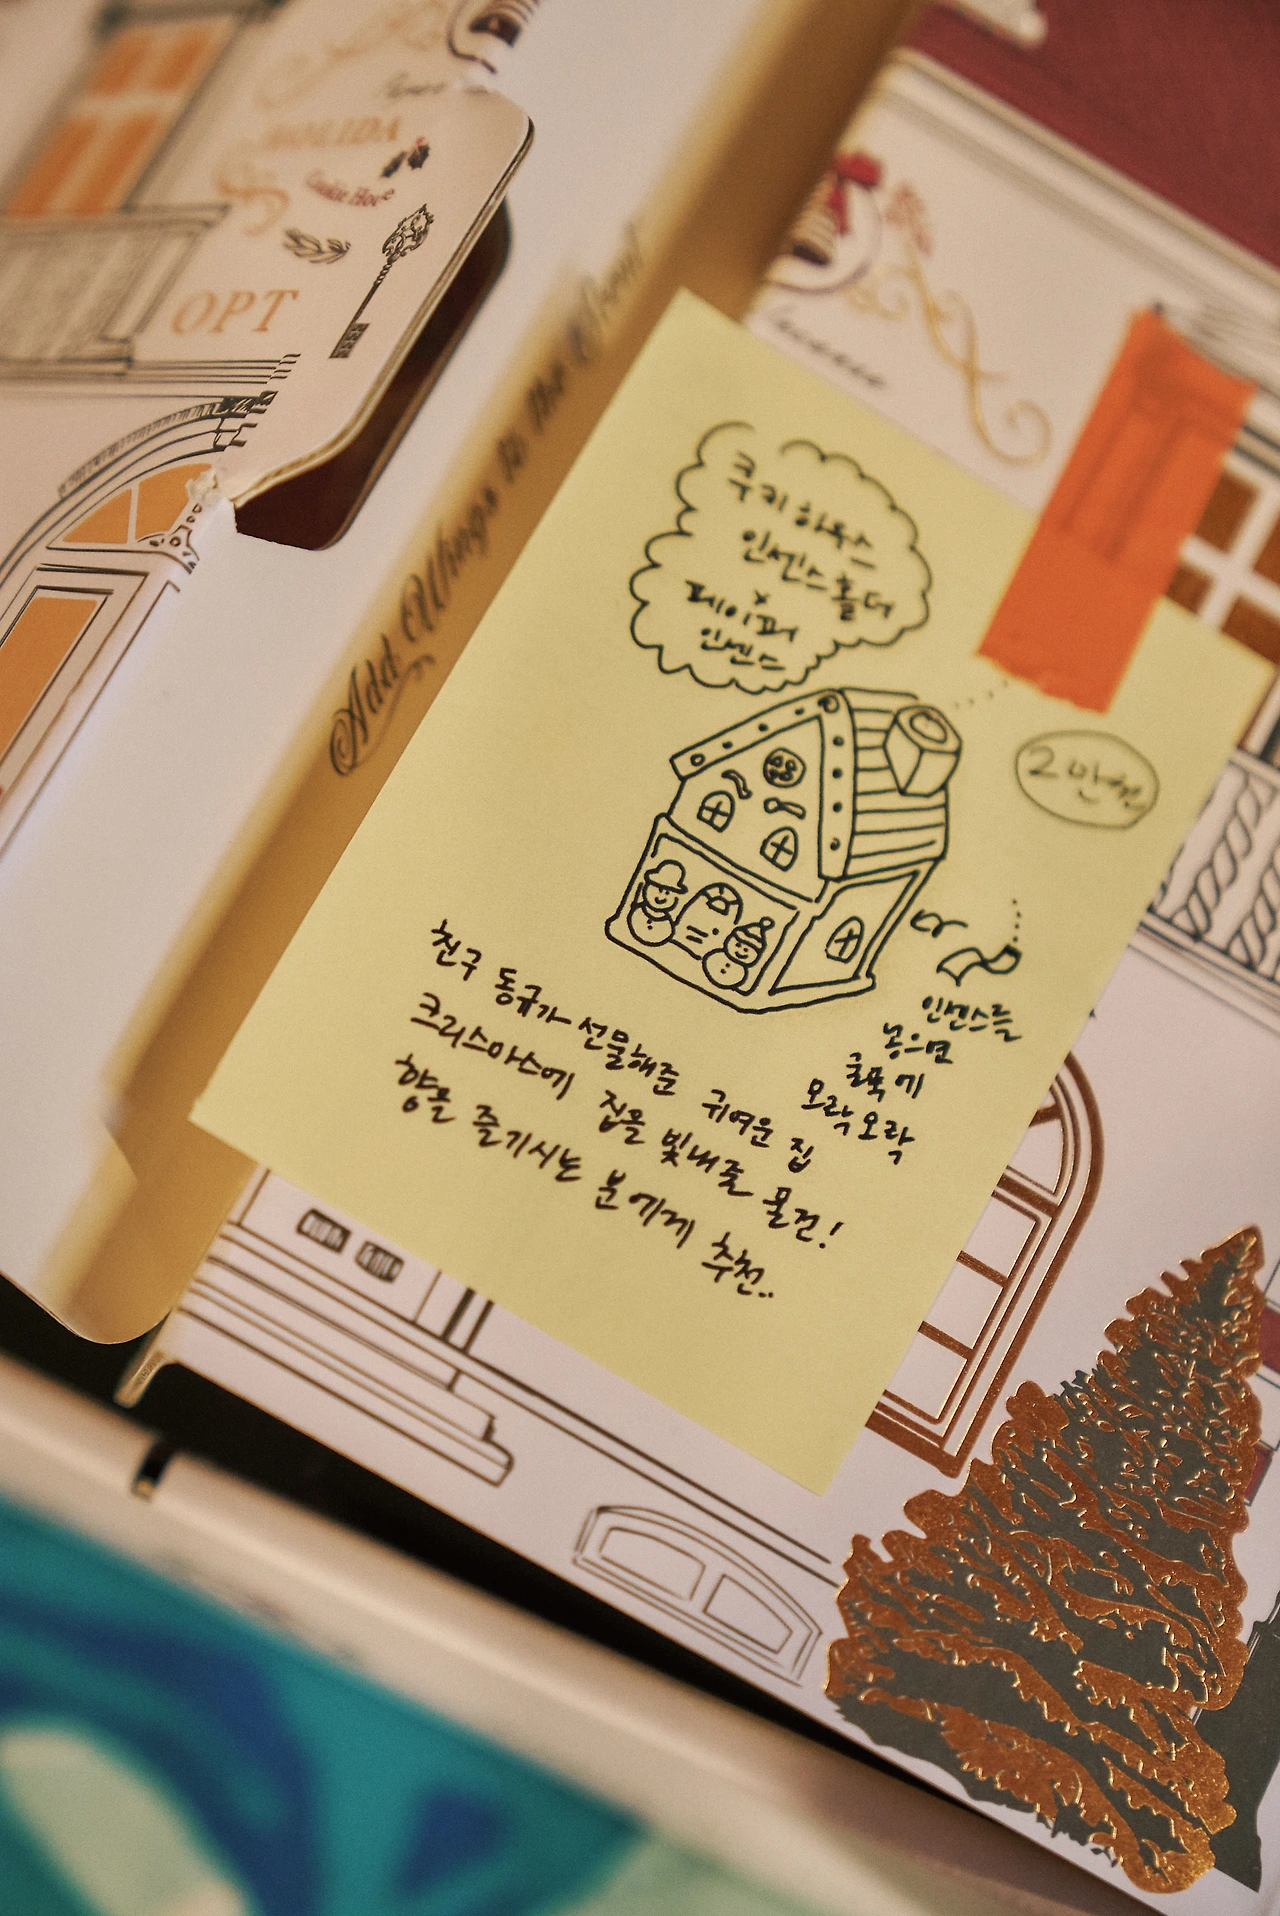 HOLIDA
Cookie House
OPT
Add Wings to the
쿠키하우스
인센스홀더
x
페이퍼
인센스
2만원
or
인센스를
놓으면
굴뚝에
모락모락
친구 동규가 선물해준 귀여운 집
크리스마스에 집을 빛내줄 물건!
향을 즐기시는 분에게 추천..